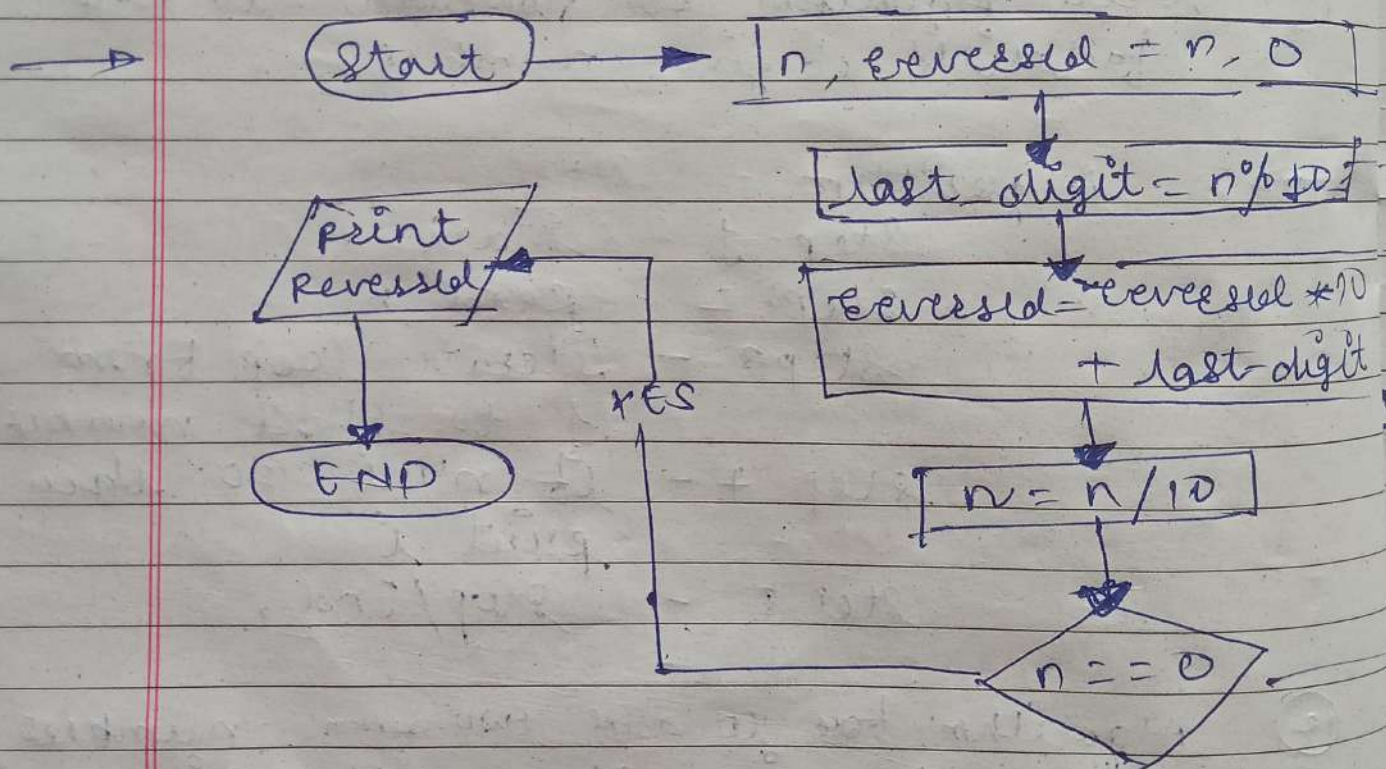 Start
n, reversed = n, 0
last_digit = n % 10
reversed = reversed * 10
+ last-digit
n = n / 10
n == 0
YES
print
Reversed
END